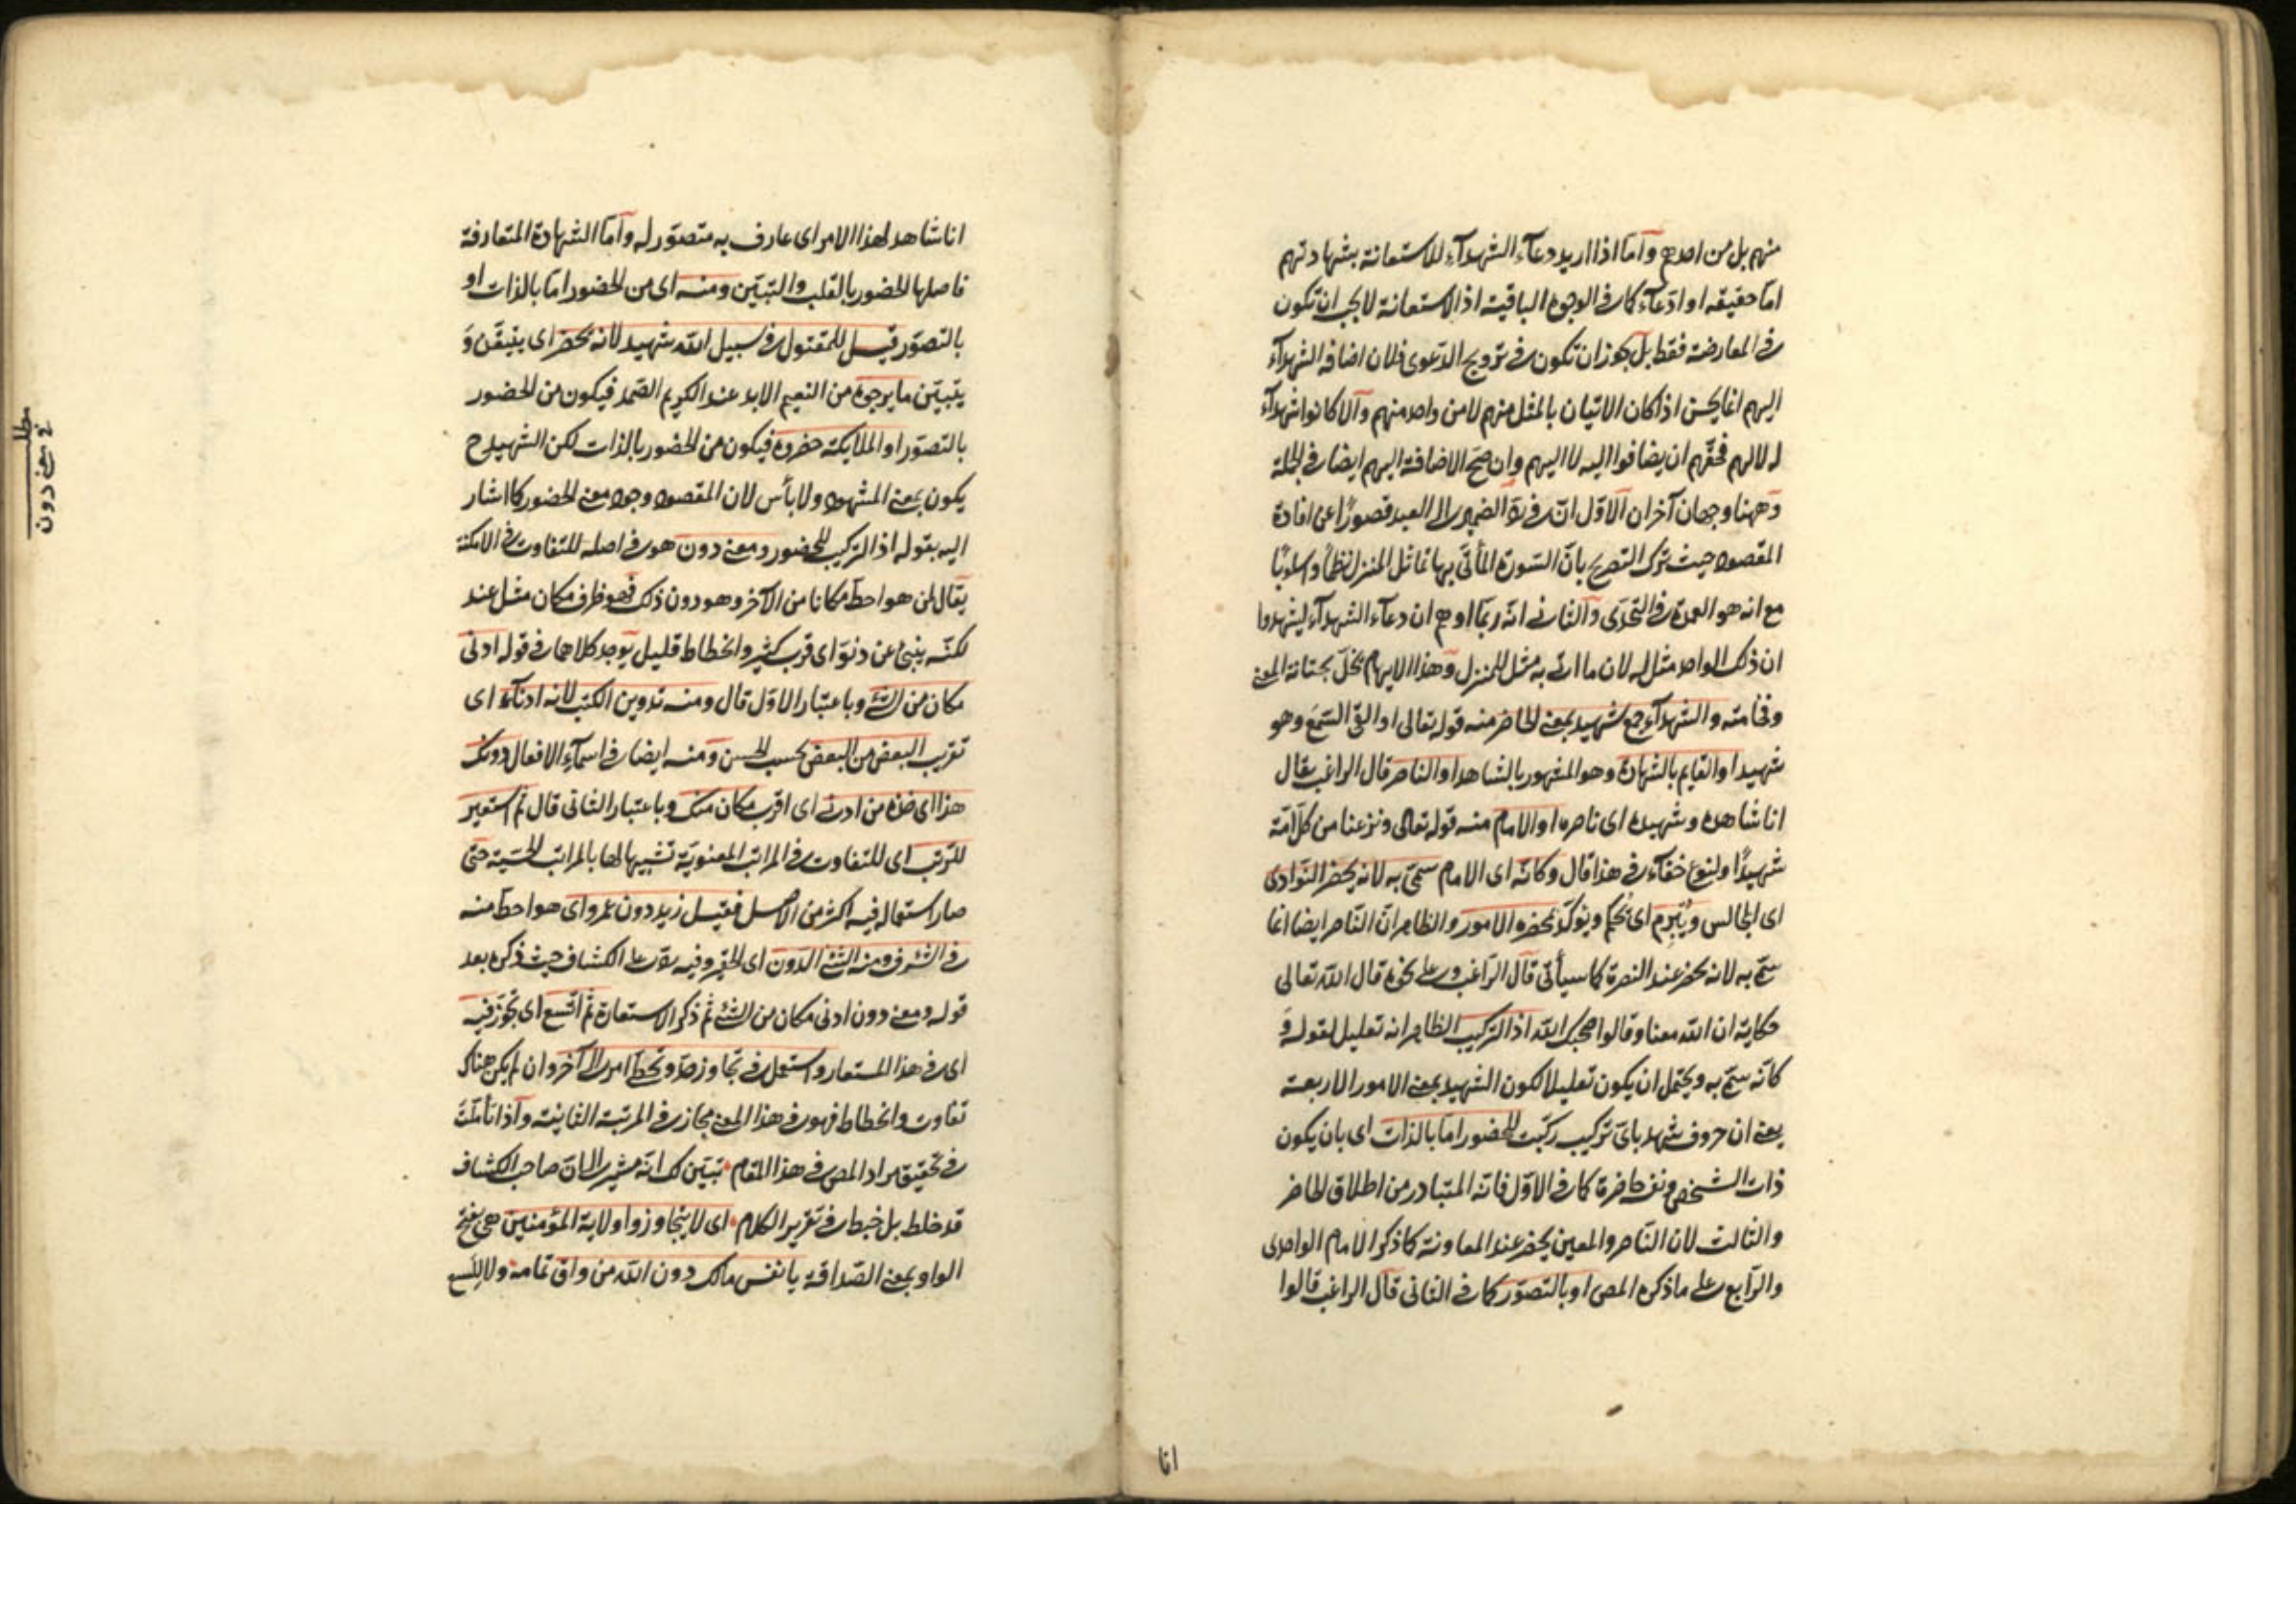 منهم بل من احدهم وامّا اذا اريد دعاء الشهدآء للاستعانة بشهادتهم
امّا حقيقه او ادّعاء كما في الوجوه الباقية اذ الاستعانة لا يجب ان تكون
في المعارضة فقط بل يجوز ان تكون في ترويج الدّعوى فلان اضافة الشهدآء
اليهم انما يحسن اذا كان الاتيان بالمثل منهم لا من واحد منهم والا كانوا شهدآء
له لا لهم فحقّهم ان يضافوا اليه لا اليهم وان صحّ الاضافة اليهم ايضا في الجملة
وههنا وجهان آخران الاوّل انّ في ردّ الضمير الى العبد قصورًا عن افادة
المقصود حيث ترك التصريح بانّ السّورة المأتيّ بها تماثل المنزل نظمًا واسلوبًا
مع انه هو العمدة في التحدّى والثاني انّه ربّما اوهم ان دعاء الشهدآء ليشهدوا
ان ذلك الواحد مثل له لان ما اتى به مثل للمنزل وهذا الايهام مخلّ بمتانة المعنى
وفخامته والشهدآء جمع شهيد بمعنى الحاضر منه قوله تعالى او القى السّمع وهو
شهيد او القايم بالشهادة وهو المشهور بالشاهد او الناصر قال الراغب يقال
انا شاهده وشهيده اى ناصره او الامام منه قوله تعالى ونزعنا من كلّ امّة
شهيدًا ولنوع خفآء في هذا قال وكانّه اى الامام سمّى به لانه يحضر النّوادى
اى المجالس ويُبرم اى يُحكم ويؤكّد بمحضره الامور والظاهر انّ النّاصر ايضا انما
سمّى به لانه يحضر عند النصرة كما سيأتى قال الرّاغب وعلى نحوه قال الله تعالى
حكاية ان الله معنا وقالوا صحبك الله اذ التركيب الظاهر انه تعليل لقوله وَ
كانّه سمّى به ويحتمل ان يكون تعليلا لكون الشهيد بمعنى الامور الاربعة
يعنى ان حروف شهد باىّ تركيب ركّبت للحضور امّا بالذات اى بان يكون
ذات الشخص ونفسه حاضرة كما في الاوّل فانّه المتبادر من اطلاق الحاضر
والثالث لان النّاصر والمعين يحضر عند المعاونة كما ذكر الامام الواحدى
والرّابع على ما ذكره المص او بالتصوّر كما في الثانى قال الراغب قالوا
انا
انا شاهد لهذا الامر اى عارف به متصوّر له وامّا الشهادة المتعارفة
فاصلها الحضور بالقلب والتبيّن ومنه اى من الحضور امّا بالذات او
بالتصوّر قيل للمقتول في سبيل الله شهيد لانه يحضر اى يتيقّن وَ
يتبيّن ما يرجوه من النعيم الابد عند الكريم الصّمد فيكون من الحضور
بالتصوّر او الملايكة حضروه فيكون من الحضور بالذات لكن الشهيد ح
يكون بمعنى المشهود ولا بأس لان المقصود وجود معنى الحضور كما اشار
اليه بقوله اذ التركيب للحضور ومعنى دون هو في اصله للتفاوت في الامكنة
يقال لمن هو احطّ مكانا من الآخر وهو دون ذلك فهو ظرف مكان مثل عند
لكنّه ينبئ عن دنوّ اى قرب كثير وانحطاط قليل يوجد كلاهما في قوله ادنى
مكان من الشئ وباعتبار الاوّل قال ومنه تدوين الكتب لانه ادناء اى
تقريب البعض من البعض بحسب الحسن ومنه ايضا في اسماء الافعال دونك
هذا اى خذه من ادنى اى اقرب مكان منك وباعتبار الثانى قال ثم استعير
للرّتب اى للتفاوت في المراتب المعنويّة تشبيها لها بالمراتب الحسّية حتى
صار استعماله فيه اكثر من الاصل فقيل زيد دون عمرو اى هو احطّ منه
في الشرف ومنه الشئ الدّون اى الحقير وفيه ردّ على الكشاف حيث ذكره بعد
قوله ومعنى دون ادنى مكان من الشئ ثم ذكر الاستعارة ثم اتّسع اى تُجوّز فيه
اى في هذا المستعار واستعمل في تجاوز حدّ وتخطّ امر الى آخر وان لم يكن هناك
تفاوت وانحطاط فهو في هذا المعنى مجاز في المرتبة الثانية واذا تأمّلت
في تحقيق مراد المص في هذا المقام تبيّن لك انّه مشير الى ان صاحب الكشاف
قد خلط بل خبط في تقرير الكلام اى لا يتجاوزوا ولاية المؤمنين هى بفتح
الواو بمعنى الصّداقة يا نفس مالك دون الله من واق تمامه ولا للسع
مطلب
في معنى دون